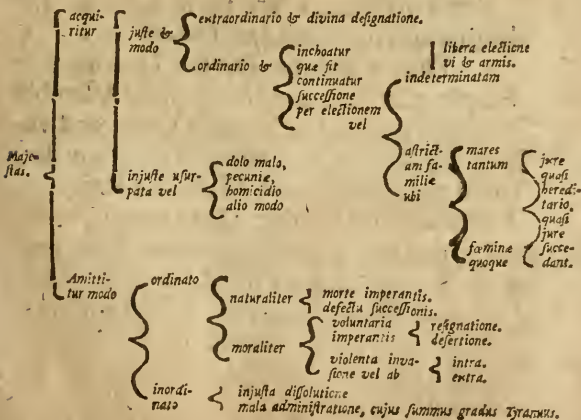 acqui-
ritur
juste &
modo
extraordinario & divina designatione.
ordinario &
inchoatur
quæ fit
continuatur
successione
per electionem
vel
libera electione
vi & armis.
indeterminatam
astrict-
am fa-
miliæ
ubi
mares
tantum
fœminæ
quoque
jure
quasi
heredi-
tario,
quasi
jure
succe-
dant.
Maje-
stas.
injuste usur-
pata vel
dolo malo,
pecuniæ,
homicidio
alio modo
Amitti-
tur modo
ordinato
naturaliter
morte imperantis.
defectu successionis.
moraliter
voluntaria
imperantis
resignatione.
desertione.
violenta inva-
sione vel ab
intra.
extra.
inordi-
nato
injusta dissolutione
mala administratione, cujus summus gradus Tyrannus.